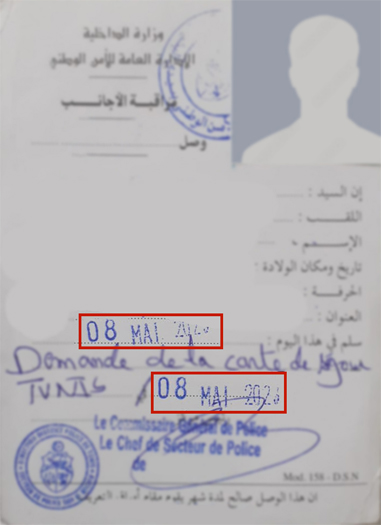 وزارة الداخلية
الإدارة العامة للأمن الوطني
مراقبة الأجانب
وصل
إن السيد :
اللقب :
الإسم :
تاريخ ومكان الولادة :
الحرفة :
العنوان :
سلم في هذا اليوم : 08 MAI
Domande de la carte de séjour
TUNIS 08 MAI 2024
Le Commissaire Général de Police
Le Chef de Secteur de Police
de
Mod. 158 - D.S.N
ان هذا الوصل صالح لمدة شهر يقوم مقام